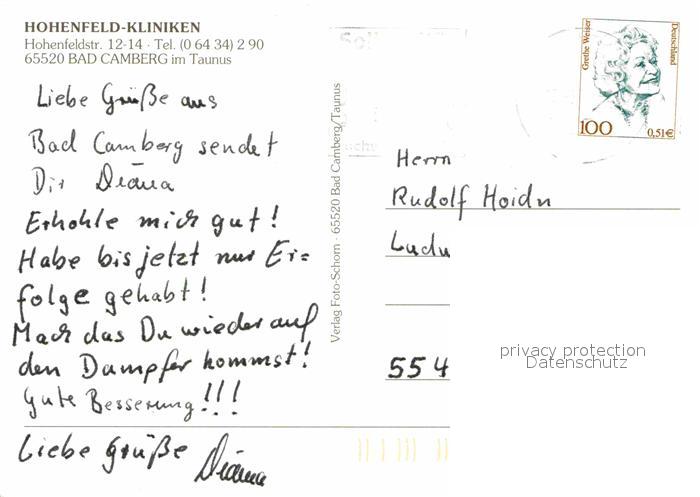 HOHENFELD-KLINIKEN
Hohenfeldstr. 12-14 · Tel. (0 64 34) 2 90
65520 BAD CAMBERG im Taunus
Liebe Grüße aus
Bad Camberg sendet
Dir Diana
Erhohle mich gut!
Habe bis jetzt nur Er=
folge gehabt!
Mach das Du wieder auf
den Dampfer kommst!
Gute Besserung!!!
Liebe Grüße Diana
Verlag Foto-Schorn · 65520 Bad Camberg/Taunus
Grethe Weiser
Deutschland
100 0,51€
Herrn
Rudolf Hoidn
Ludw
554
privacy protection
Datenschutz